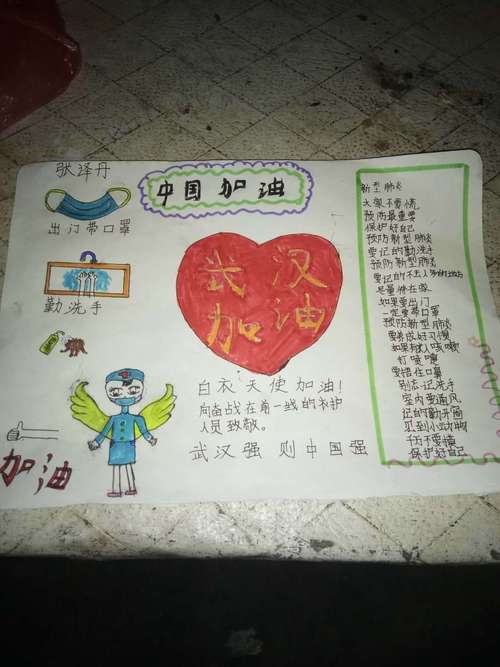 张泽丹
中国加油
出门带口罩
勤洗手
武汉
加油
白衣天使加油!
向奋战在前一线的医护
人员致敬。
武汉强 则中国强
加油
新型肺炎
大家不要慌
预防最重要
保护好自己
预防新型肺炎
要记的勤洗手
预防新型肺炎
要记的不去人多的地方
尽量件在家
如果要出门
一定要带口罩
预防新型肺炎
要养成好习惯
如果有人咳嗽
打喷嚏
要捂住口鼻
别忘记洗手
室内要通风
记的勤开窗
见到小动物
千万不要慌
保护好自己